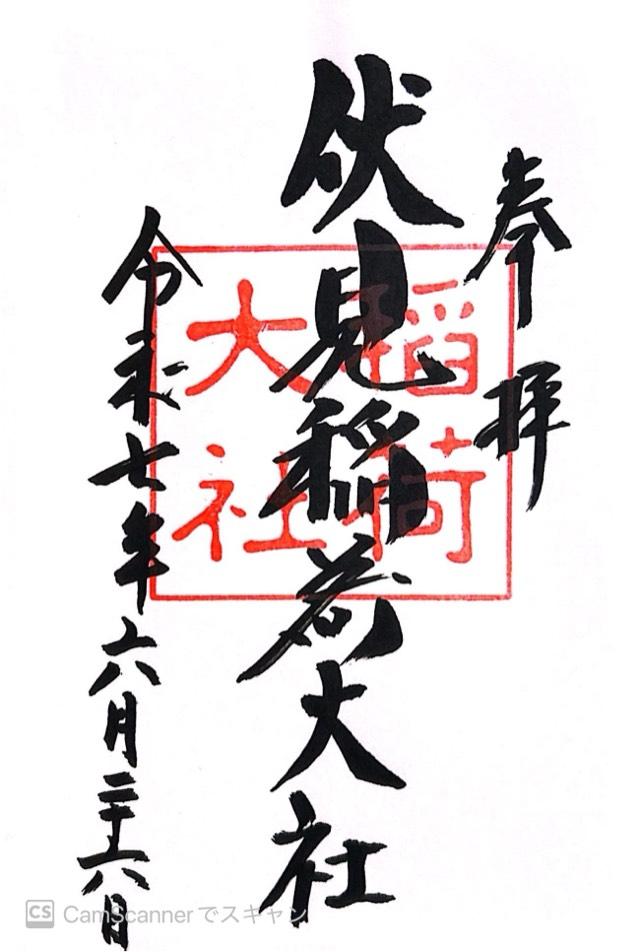 奉拝
伏見稲荷大社
稲荷
大社
令和七年六月二十六日
CS CamScannerでスキャン